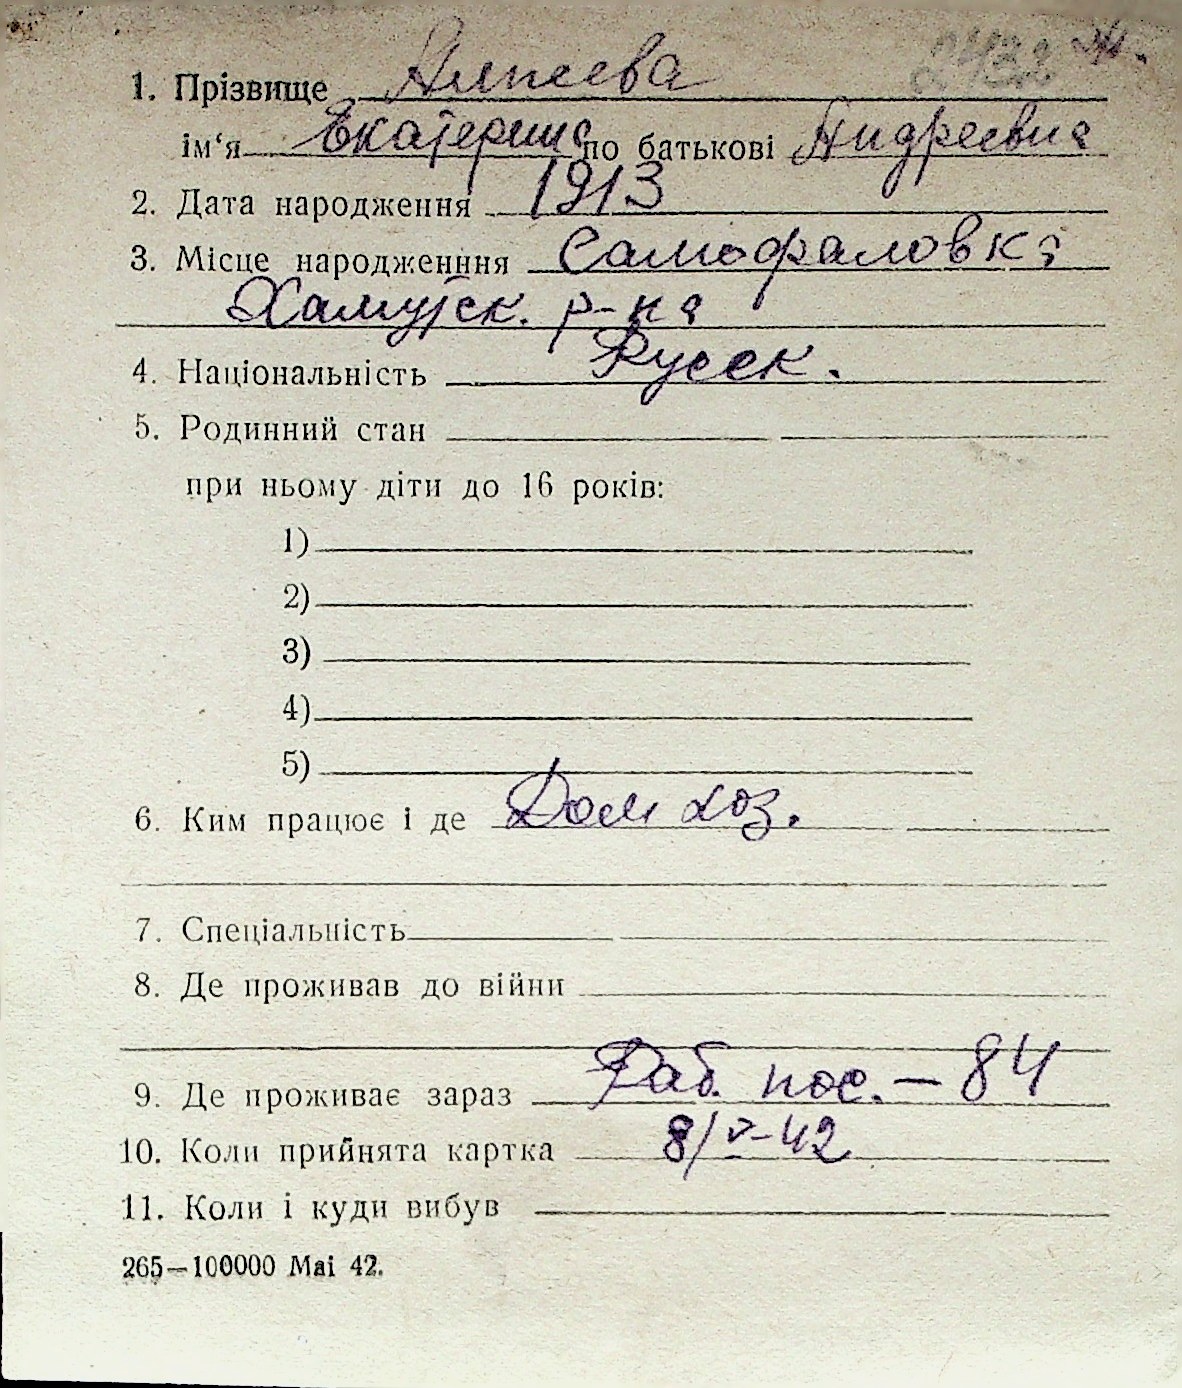 1. Прізвище Алпеева
ім‘я Екатерина по батькові Андреевна
2. Дата народження 1913
3. Місце народженння Самофаловка
Хамутск. р-на
4. Національність Русск.
5. Родинний стан
при ньому діти до 16 років:
1)
2)
3)
4)
5)
6. Ким працює і де Дом хоз.
7. Спеціальність
8. Де проживав до війни
9. Де проживає зараз Раб. пос. — 84
10. Коли прийнята картка 8/V-42
11. Коли і куди вибув
265—100000 Mai 42.